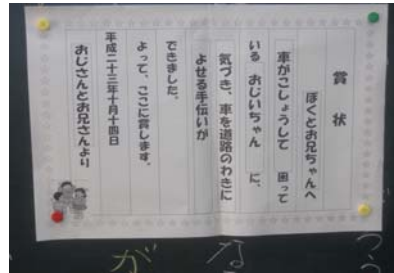 賞状
ぼくとお兄ちゃんへ
車がこしょうして 困って
いる おじいちゃん に、
気づき、車を道路のわきに
よせる手伝いが
できました。
よって、ここに賞します。
平成二十三年十月十四日
おじさんとお兄さんより
つ
な
が